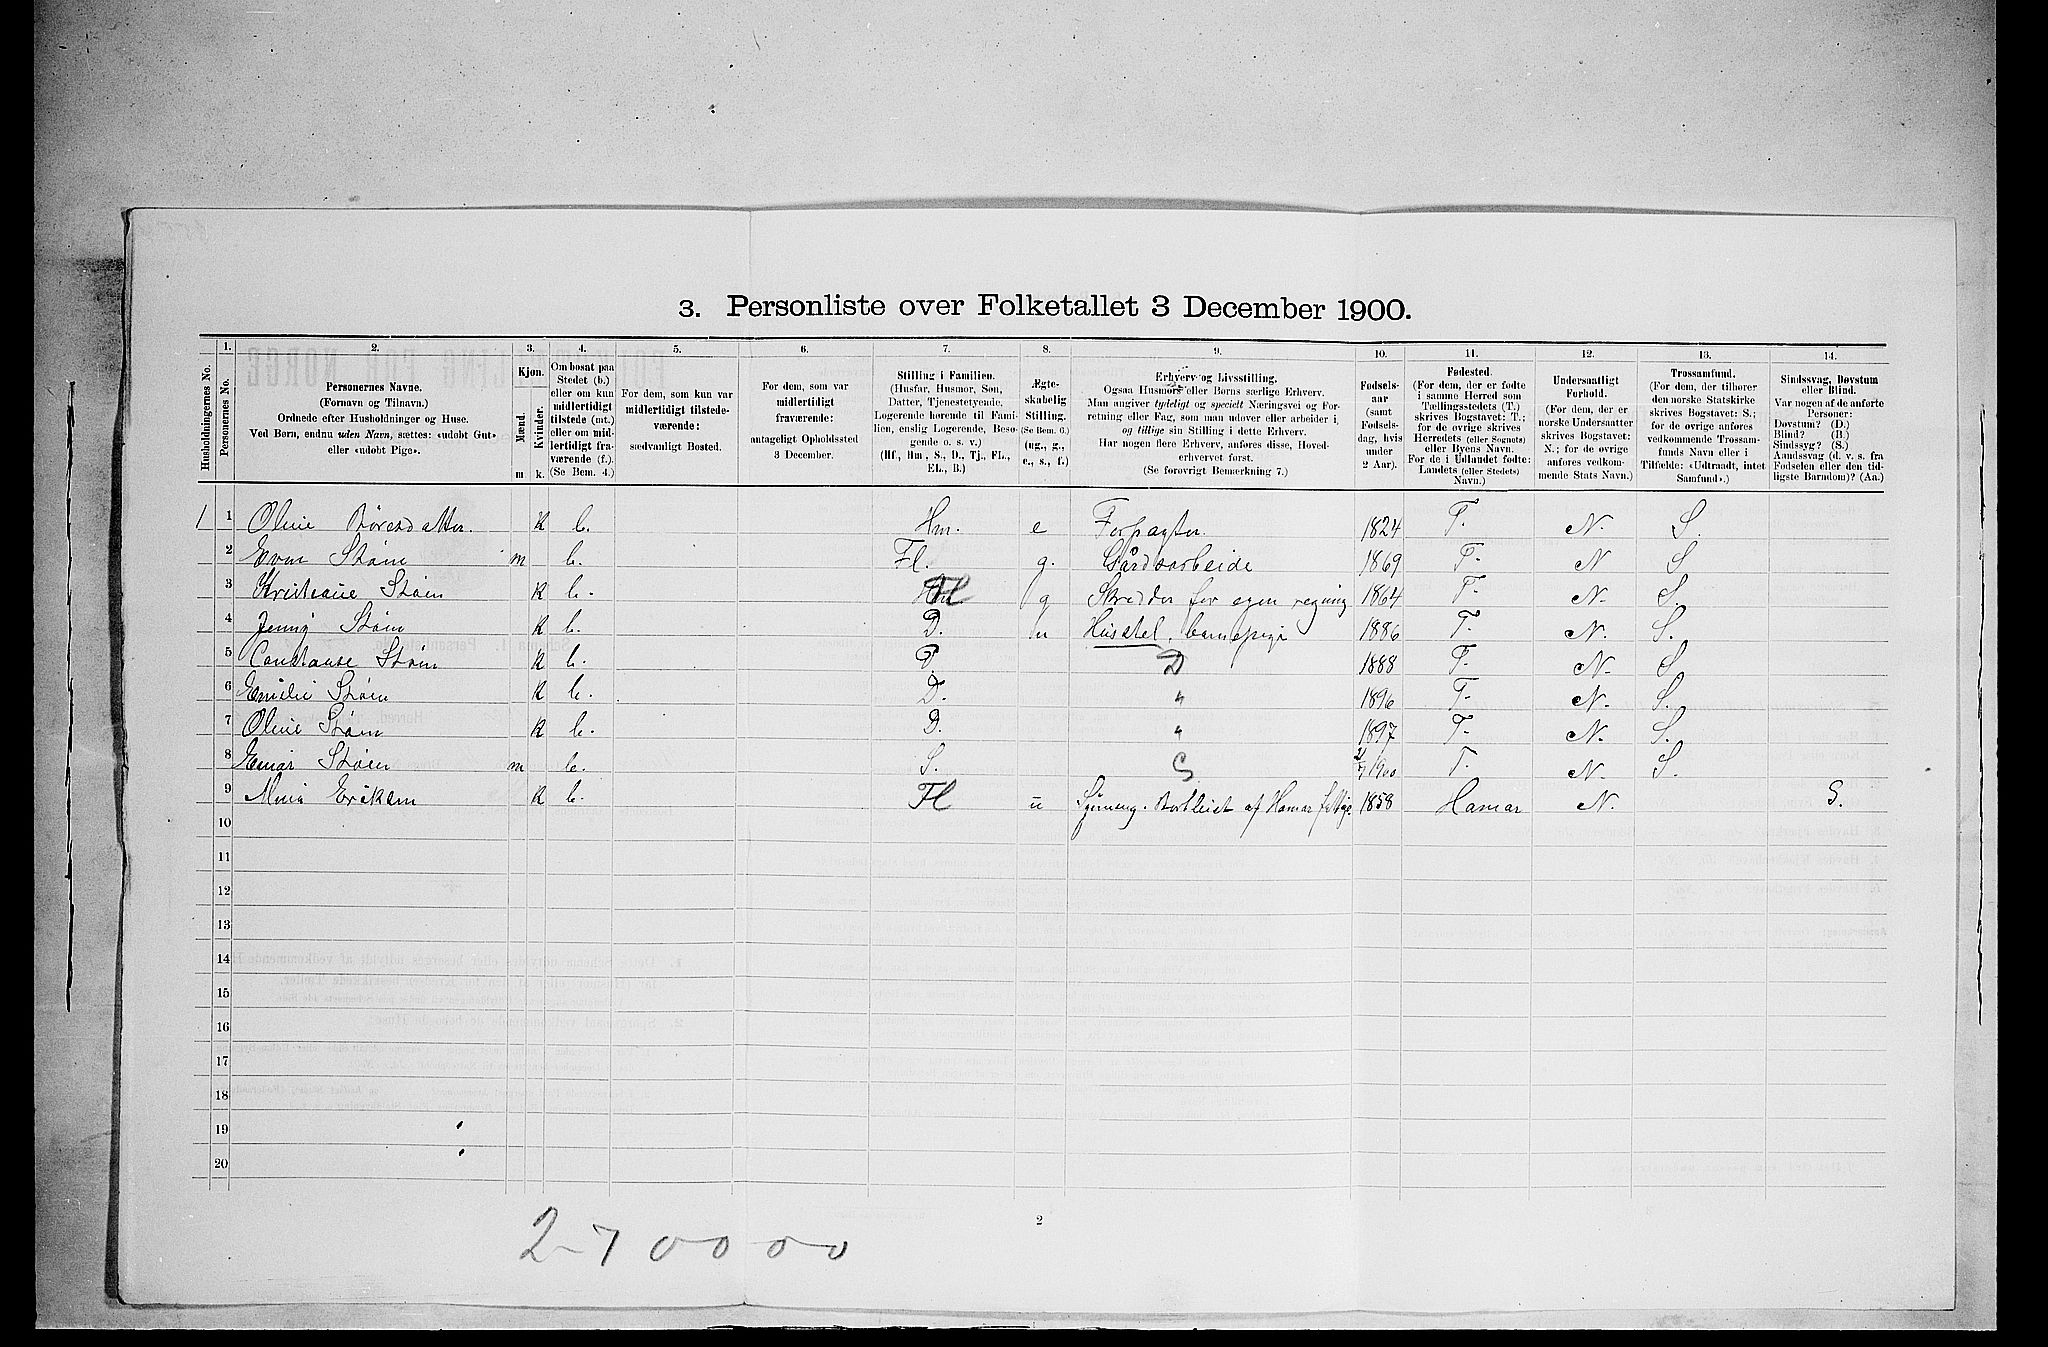 3. Personliste over Folketallet 3 December 1900.
Husholdningernes No.
1.
Personernes No.
2.
Personernes Navne.
(Fornavn og Tilnavn.)
Ordnede efter Husholdninger og Huse.
Ved Børn, endnu uden Navn, sættes: «udøbt Gut»
eller «udøbt Pige».
3.
Kjøn.
Mænd.
Kvinder.
m
k.
4.
Om bosat paa
Stedet (b.)
eller om kun
midlertidigt
tilstede (mt.)
eller om mid-
lertidigt fra-
værende (f.).
(Se Bem. 4.)
5.
For dem, som kun var
midlertidigt tilstede-
værende:
sædvanligt Bosted.
6.
For dem, som var
midlertidigt
fraværende:
antageligt Opholdssted
3 December.
7.
Stilling i Familien.
(Husfar, Husmor, Søn,
Datter, Tjenestetyende,
Logerende hørende til Fami-
lien, enslig Logerende, Besø-
gende o. s. v.)
(Hf., Hm., S., D., Tj., FL.,
EL., B.)
8.
Ægte-
skabelig
Stilling.
(Se Bem. 6.)
(ug., g.,
e., s., f.)
9.
Erhverv og Livsstilling.
Ogsaa Husmors eller Børns særlige Erhverv.
Man angiver tydeligt og specielt Næringsvei og For-
retning eller Fag, som man udøver eller arbeider i,
og tillige sin Stilling i dette Erhverv.
Har nogen flere Erhverv, anføres disse, Hoved-
erhvervet først.
(Se forøvrigt Bemærkning 7.)
10.
Fødsels-
aar
(samt
Fødsels-
dag, hvis
under
2 Aar).
11.
Fødested.
(For dem, der er fødte
i samme Herred som
Tællingsstedets (T.)
skrives Bogstavet: T.;
for de øvrige skrives
Herredets (eller Sognets)
eller Byens Navn.
For de i Udlandet fødte:
Landets (eller Stedets)
Navn.)
12.
Undersaatligt
Forhold.
(For dem, der er
norske Undersaatter
skrives Bogstavet:
N.; for de øvrige
anføres vedkom-
mende Stats Navn.)
13.
Trossamfund.
(For dem, der tilhører
den norske Statskirke
skrives Bogstavet: S.;
for de øvrige anføres
vedkommende Trossam-
funds Navn eller i
Tilfælde: «Udtraadt, intet
Samfund».)
14.
Sindssvag, Døvstum
eller Blind.
Var nogen af de anførte
Personer:
Døvstum? (D.)
Blind? (B.)
Sindssyg? (S.)
Aandssvag (d. v. s. fra
Fødselen eller den tid-
ligste Barndom)? (Aa.)
1 1 Oline K b. Hm. e Forpagter. 1824 T. N. S.
2 Even Støen m b. Fl. g. Gårdsarbeide 1869 T. N S
3 Kristiane Støen K b. Fl g Skredder for egen regning 1864 T. N. S.
4 Jenny Støen K b. D. u Husstel, barnepige 1886 T. N. S.
5 Constanse Støen K b. D. D 1888 T. N. S
6 Emilie Støen K b. D. " 1896 T. N. S.
7 Oline Støen K b. D. " 1897 T. N. S.
8 Einar Støen m b. S. G 1900 T. N. S.
9 Eriksen K b. Fl u af Hamar 1858 Hamar N. S.
10
11
12
13
14
15
16
17
18
19
20
2
270000